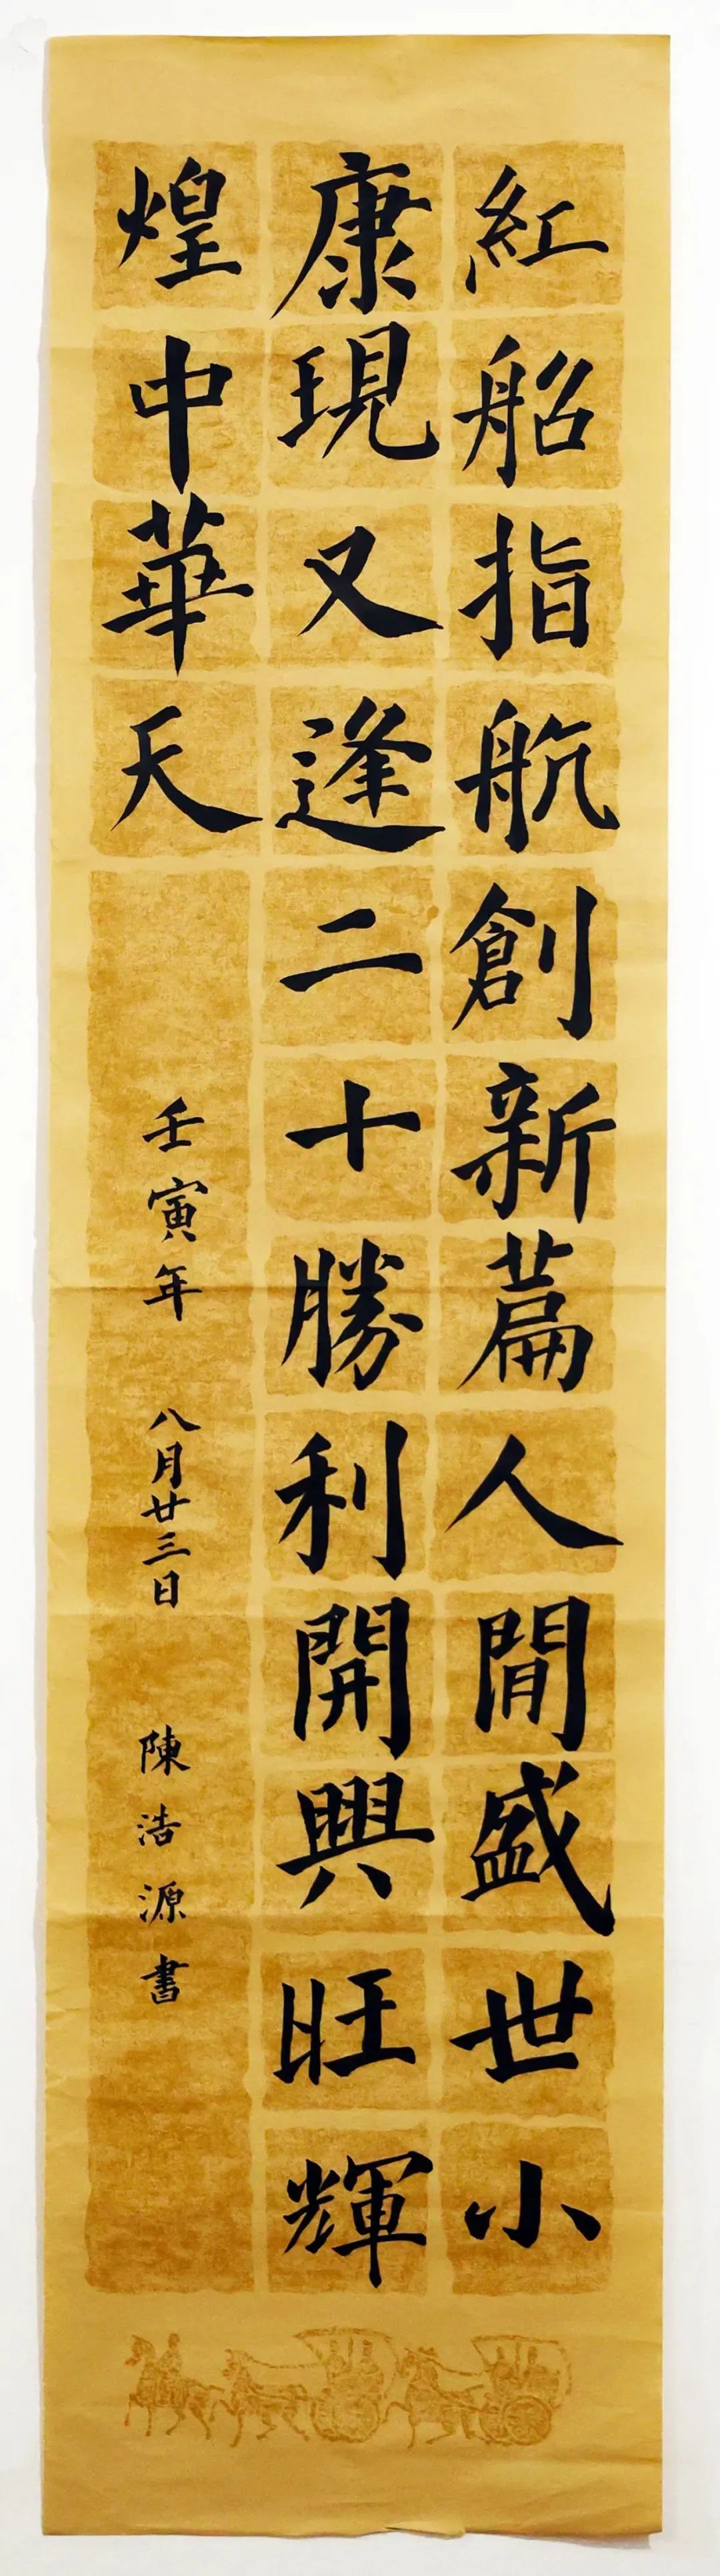 紅船指航創新篇人間盛世小
康現又逢二十勝利開興旺輝
煌中華天
壬寅年 八月廿三日 陳浩源書